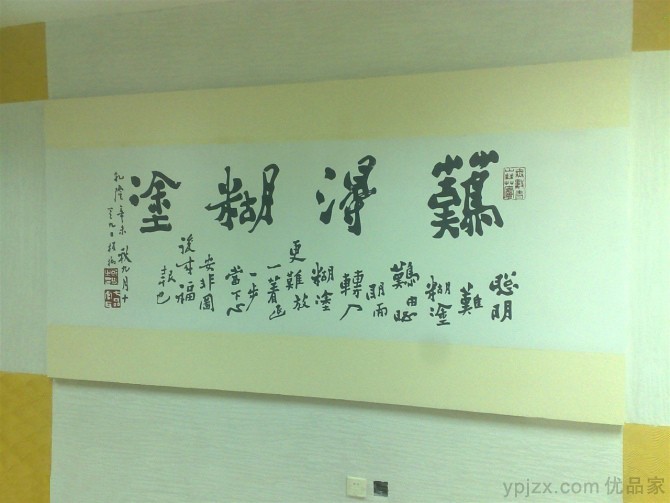 難得糊塗
聰明
難
糊塗
難由聰
明而
轉入
糊塗
更難放
一着退
一步
當下心
安非圖
後來福
報也
乾隆辛未秋九月十
九日板橋
ypjzx.com 优品家